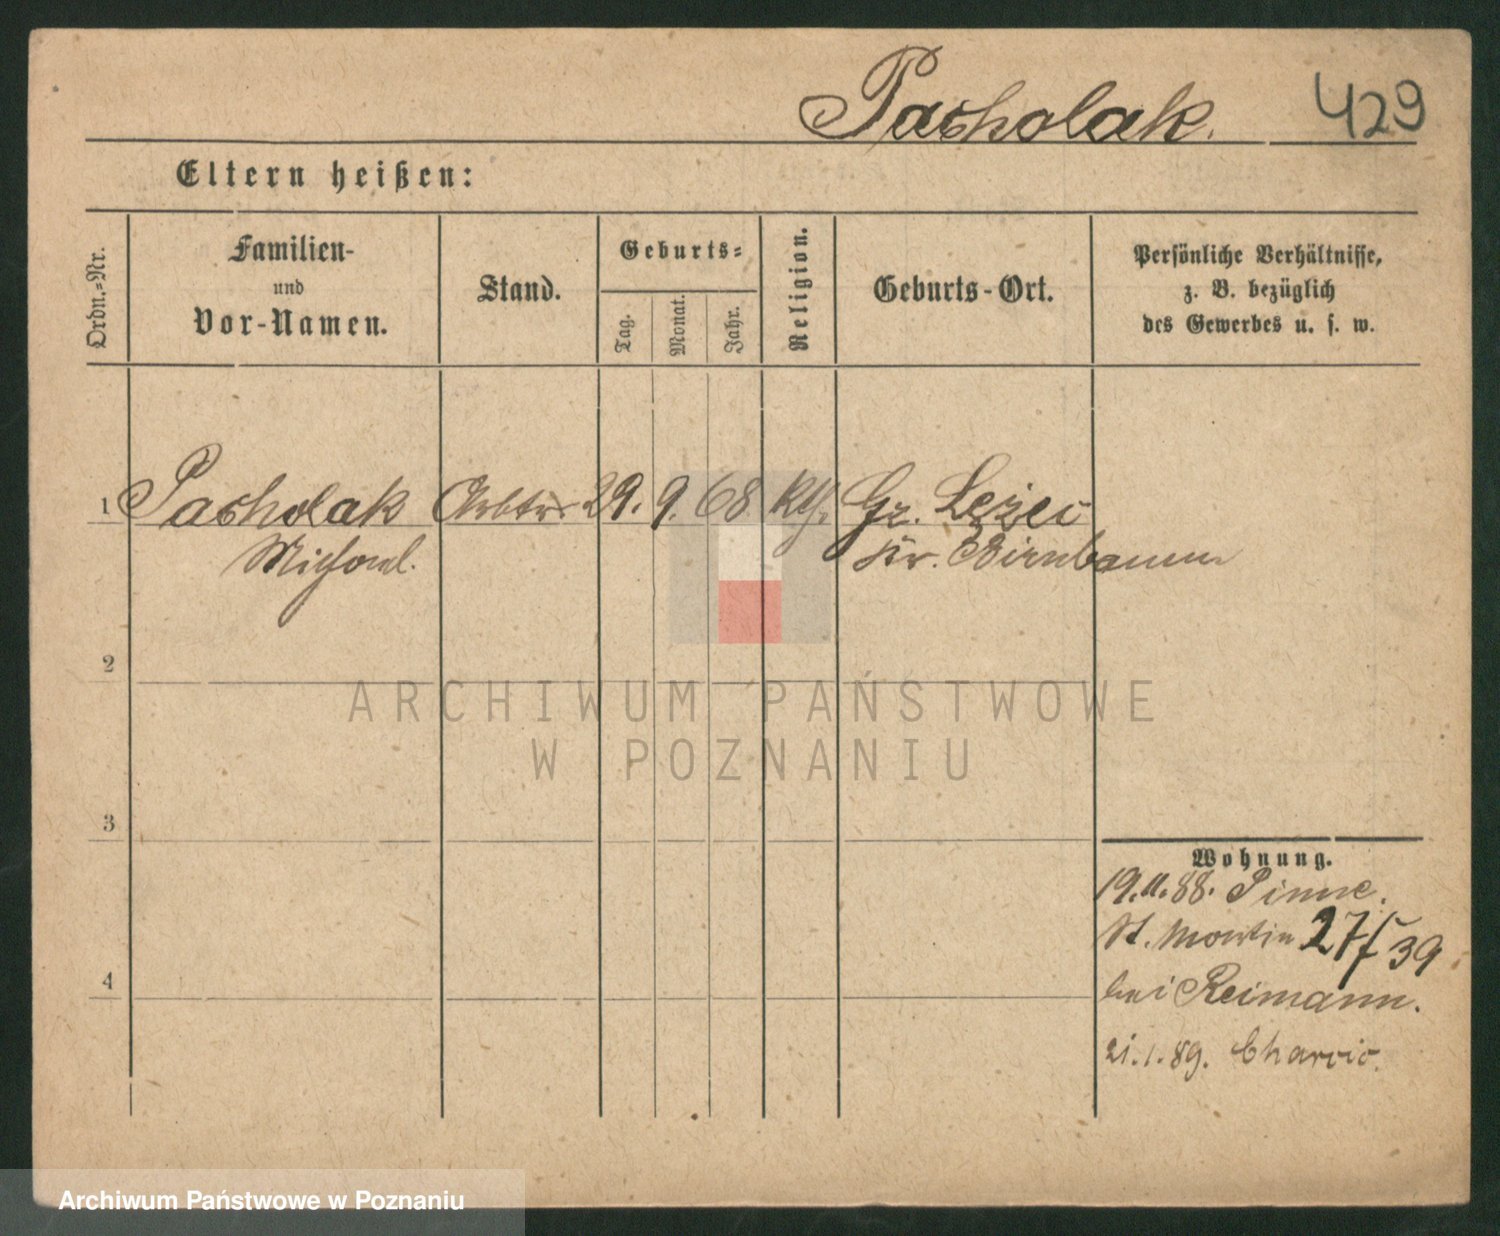 Pacholak. 429
Eltern heißen:
Ordn.-Nr.
Familien-
und
Vor-Namen.
Stand.
Geburts-
Tag.
Monat.
Jahr.
Religion.
Geburts-Ort.
Persönliche Verhältnisse,
z. B. bezüglich
des Gewerbes u. s. w.
1 Pacholak Arbtr 29. 9. 68 kth. Gr. Leżec
Michael. Kr. Birnbaum
2
3
4
Wohnung.
19.11.88. Pinne.
St. Martin 27/39
bei Reimann.
21.1.89.
ARCHIWUM PAŃSTWOWE
W POZNANIU
Archiwum Państwowe w Poznaniu